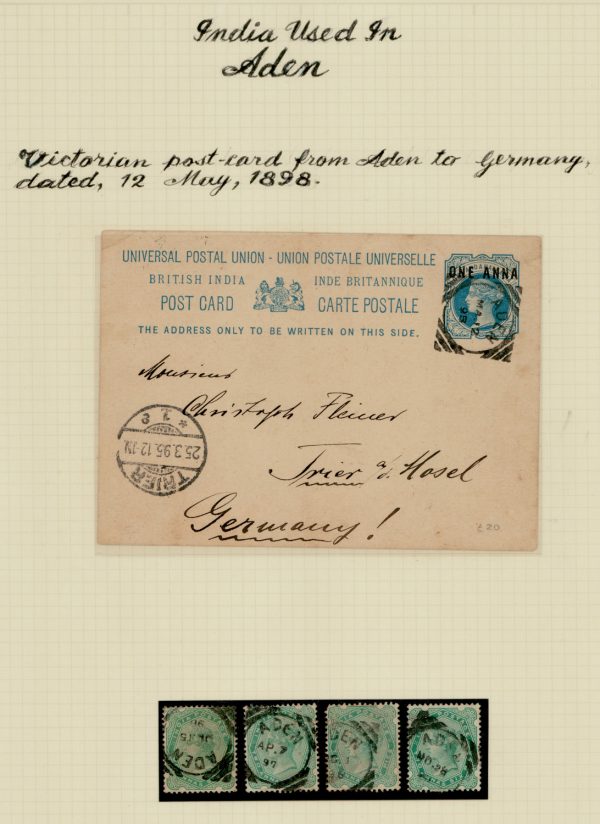 India Used In
Aden
Victorian post-card from Aden to Germany,
dated, 12 May, 1898.
UNIVERSAL POSTAL UNION - UNION POSTALE UNIVERSELLE
BRITISH INDIA INDE BRITANNIQUE
POST CARD CARTE POSTALE
THE ADDRESS ONLY TO BE WRITTEN ON THIS SIDE.
ONE ANNA
ADEN
MA 12
95
Monsieur
Christoph Fleiner
Trier a/d. Mosel
Germany!
TRIER
25.3.95.12-1N.
* 1 2
£20
ADEN
ADEN
AP.7
97
DEN
ADE